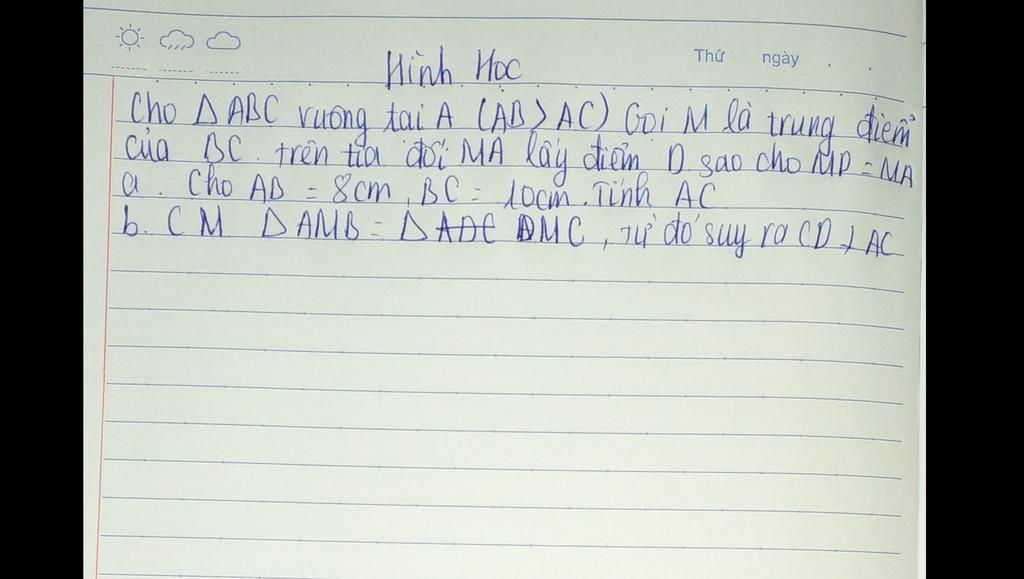 Thứ ngày . .
Hình Học
Cho Δ ABC vuong tai A (AB > AC) Goi M là trung điểm
của BC. trên tia đối MA lấy điểm D sao cho MD = MA
a. Cho AB = 8cm, BC = 10cm. Tính AC
b. CM Δ AMB = Δ DMC, từ đó suy ra CD ⊥ AC